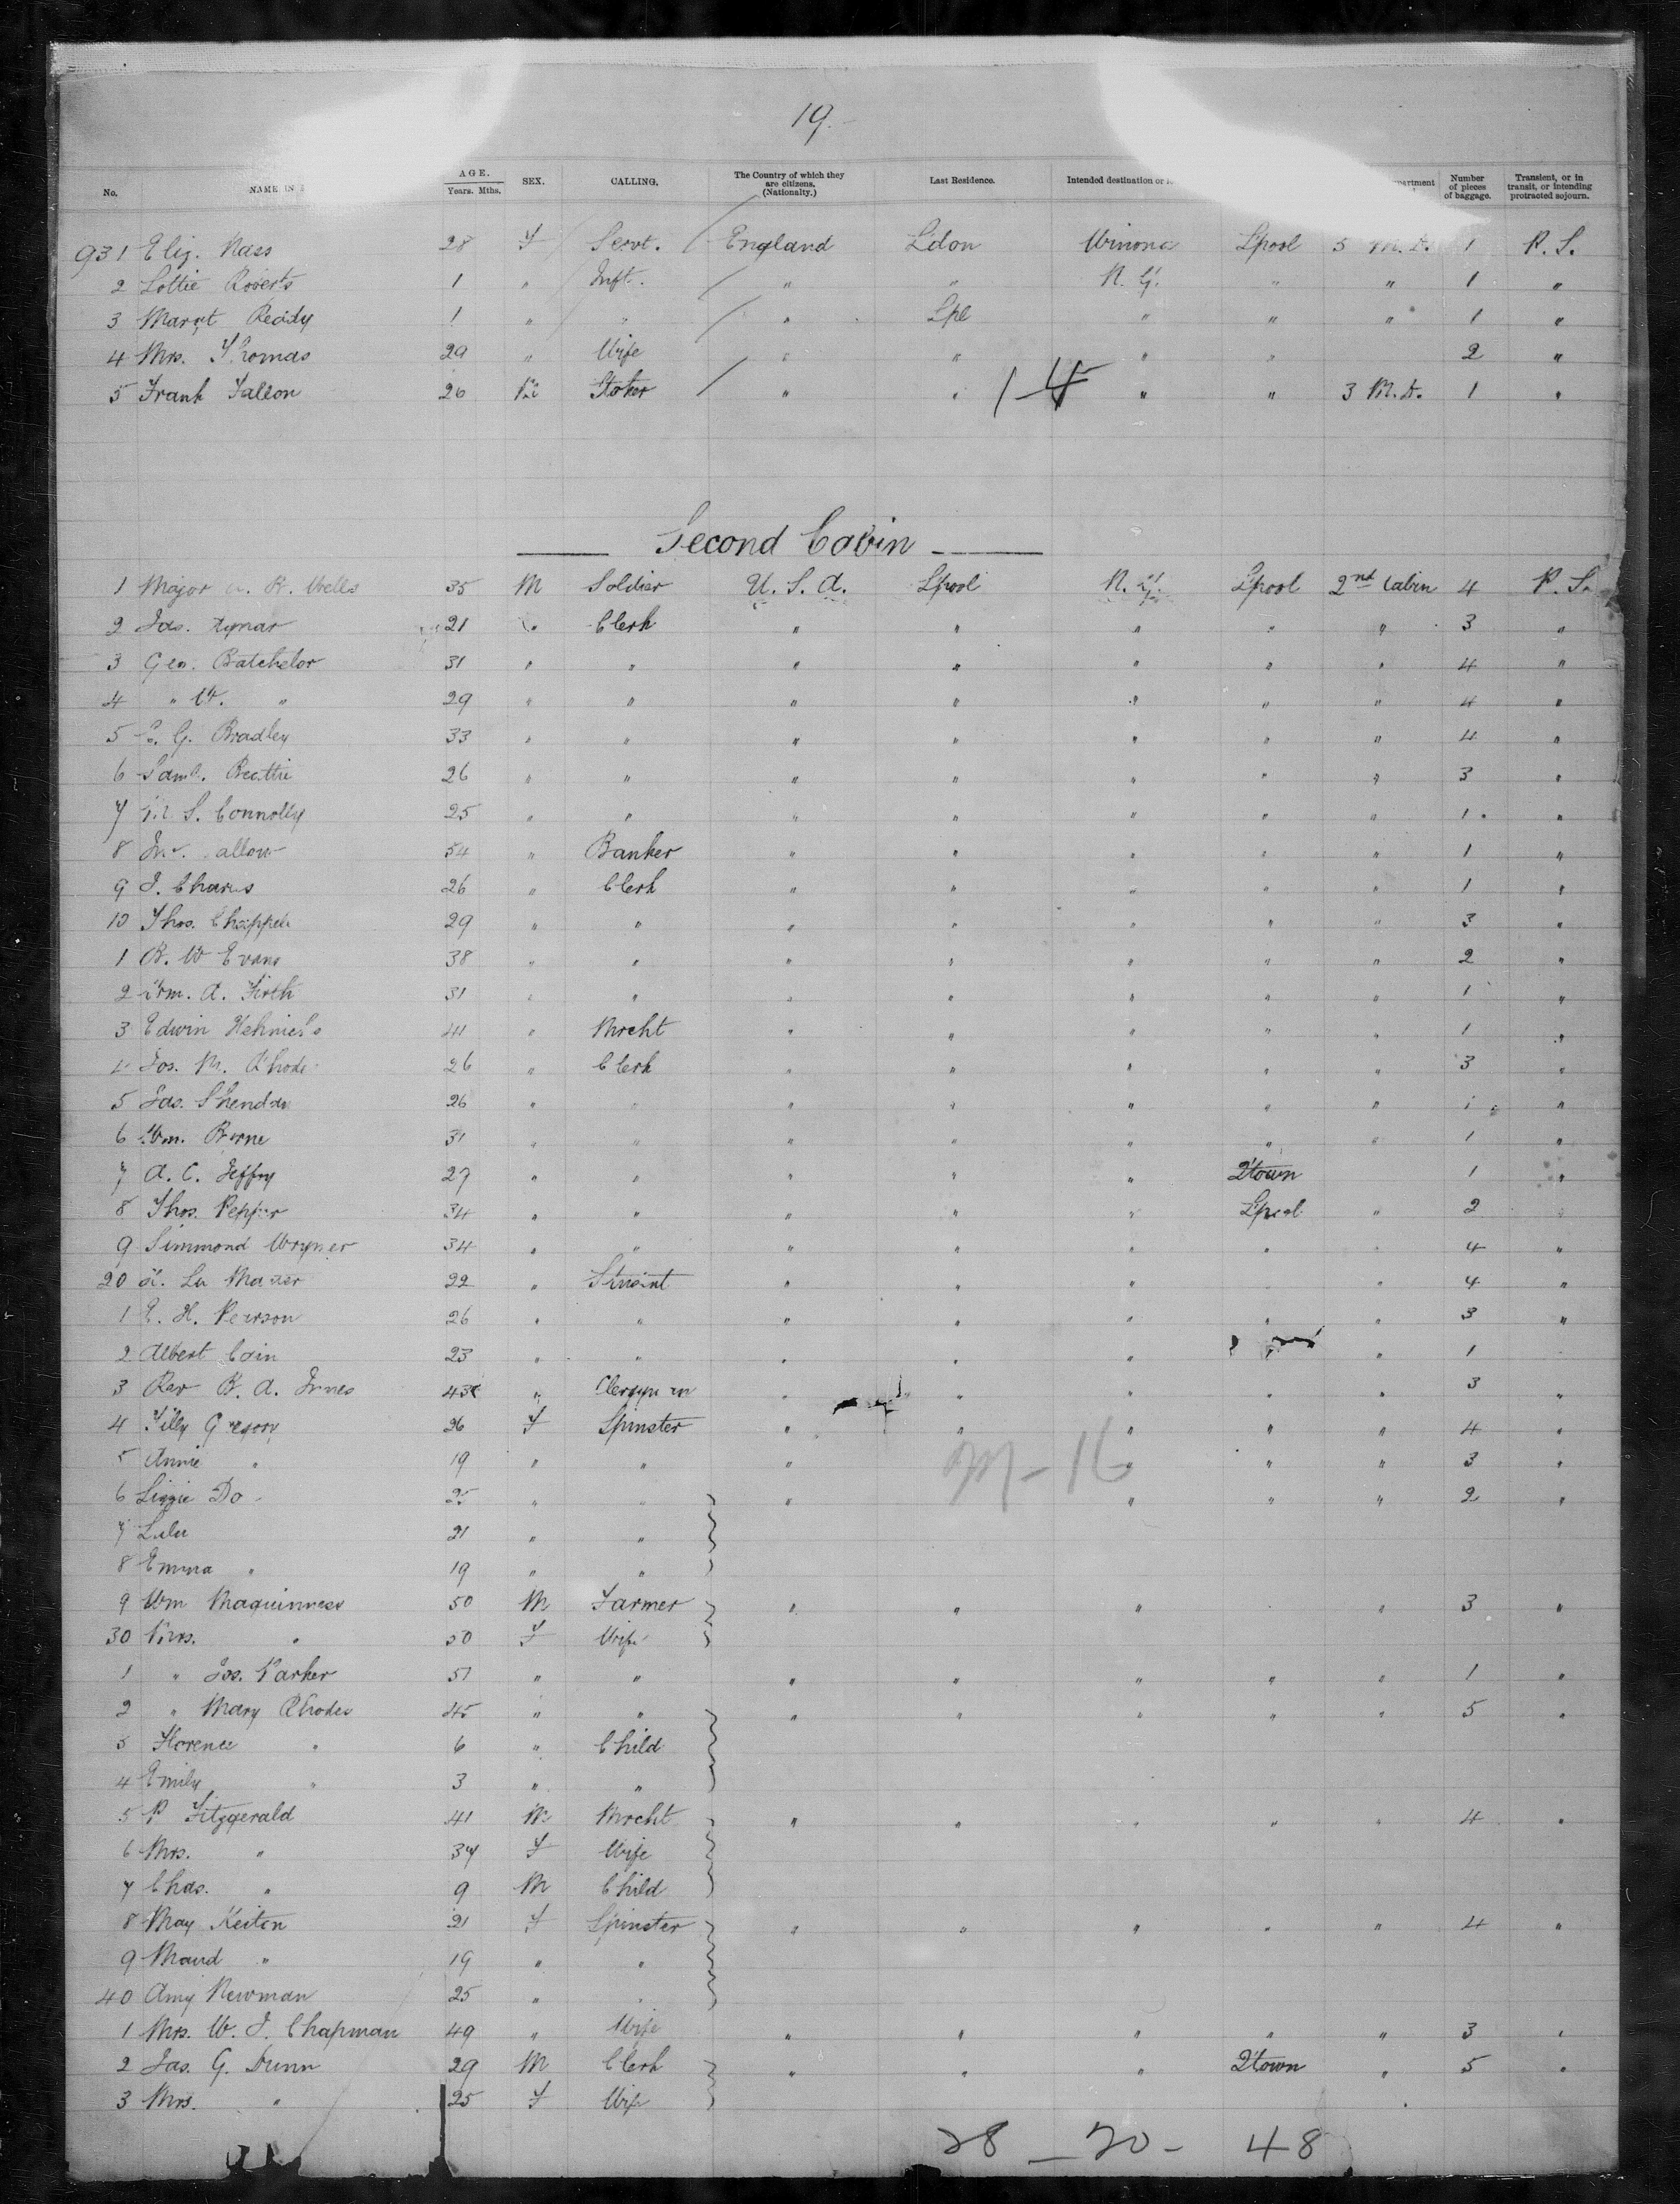 19.-
No. NAME IN AGE. Years. Mths. SEX. CALLING. The Country of which they are citizens. (Nationality.) Last Residence. Intended destination or Number of pieces of baggage. Transient, or in transit, or intending protracted sojourn.
931 Eliz. Nass 28 F Servt. England L'don Winona Lpool M.D. 1 P.S.
2 Lottie Roberts 1 " Inft. " " N.Y. " " 1 "
3 Margt Reddy 1 " " " Lpl " " " 1 "
4 Mrs. Thomas 29 " Wife " " " " 2 "
5 Frank Fallon 26 M Stoker " " " " 3 M.D. 1 "
Second Cabin
1 Major R. Wells 35 M Soldier U.S.A. Lpool N.Y. Lpool 2nd Cabin 4 P.S.
2 Jas. 21 " Clerk " " " " " 3 "
3 Geo. Batchelor 31 " " " " " " " 4 "
4 " W. " 29 " " " " " " " 4 "
5 G. Bradley 33 " " " " " " " 4 "
6 Saml. Beattie 26 " " " " " " " 3 "
7 S. Connolly 25 " " " " " " " 1 "
8 54 " Banker " " " " " 1 "
9 J. 26 " Clerk " " " " " 1 "
10 Thos. Chappell 29 " " " " " " " 3 "
1 R. W Evans 38 " " " " " " " 2 "
2 Wm. A. Firth 31 " " " " " " " 1 "
3 Edwin 41 " Mrcht " " " " " 1 "
4 Jos. M. Rhode 26 " Clerk " " " " " 3 "
5 Jas. 26 " " " " " " " 1 "
6 Wm. Berne 31 " " " " " " " 1 "
7 A. C. Jeffry 27 " " " " " Q'town 1 "
8 Thos. Pepper 34 " " " " " Lpool " 2 "
9 Simmond 34 " " " " " " " 4 "
20 22 " Student " " " " 4 "
1 E. H. Pearson 26 " " " " " " " 3 "
2 Albert Cain 23 " " " " " " " 1
3 Rev R. A. 43 " Clergyman " " " " " 3 "
4 Tilly Gregory 26 F Spinster " " " " " 4 "
5 Annie " 19 " " " " " " 3 "
M-16
6 Lizzie Do 25 " " " " " " 2 "
7 Lulu 21 " "
8 Emma " 19 " "
9 Wm Maguinness 50 M Farmer " " " " 3 "
30 Mrs. " 50 F Wife
1 " Jos. Parker 51 " " " " " " " 1 "
2 " Mary Rhodes 45 " " " " " " " 5 "
3 Florence " 6 " Child
4 Emily " 3 " "
5 P Fitzgerald 41 M Mrcht " " " " " 4 "
6 Mrs. " 37 F Wife
7 Chas. " 9 M Child
8 May Keiton 21 F Spinster " " " " " 4 "
9 Maud " 19 " "
40 Amy Newman 25 " "
1 Mrs. W. J. Chapman 49 " Wife " " " " " 3 "
2 Jas. G. Dunn 29 M Clerk " " " Q'town " 5 "
3 Mrs. " 25 F Wife
28 - 20 - 48